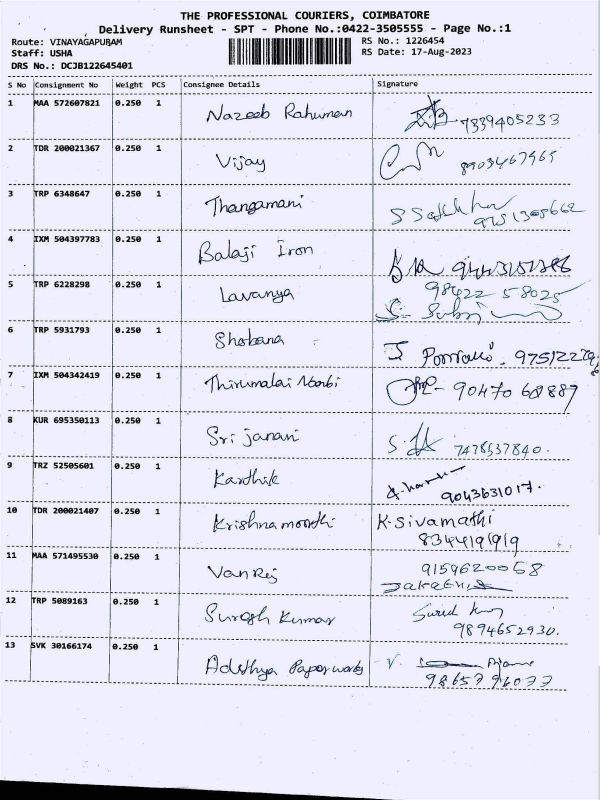 THE PROFESSIONAL COURIERS, COIMBATORE
Delivery Runsheet - SPT - Phone No.:0422-3505555 - Page No.:1
Route: VINAYAGAPURAM RS No.: 1226454
Staff: USHA RS Date: 17-Aug-2023
DRS No.: DCJB122645401
S No Consignment No Weight PCS Consignee Details Signature
1 MAA 572607821 0.250 1 Nazeeb Rahuman 7339405233
2 TDR 200021367 0.250 1 Vijay 8903467965
3 TRP 6348647 0.250 1 Thangamani
4 IXM 504397783 0.250 1 Balaji Iron
5 TRP 6228298 0.250 1 Lavanya 98422 58025
6 TRP 5931793 0.250 1 Shobana
7 IXM 504342419 0.250 1 Thirumalai Nambi
8 KUR 695350113 0.250 1 Sri janani 7478537840.
9 TRZ 52505601 0.250 1 Karthik 9043631017.
10 TDR 200021407 0.250 1 Krishnamoorthi K. Sivamathi
8344191919
11 MAA 571495530 0.250 1 Vanrej 9159620058
12 TRP 5089163 0.250 1 Suresh Kumar
9894652930.
13 SVK 30166174 0.250 1 Adithya Paperworks
9865796077